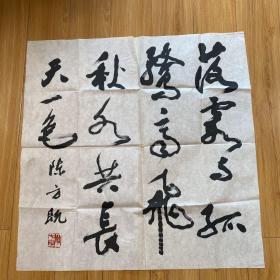 落霞与孤
鶩齐飛
秋水共長
天一色
陈方既